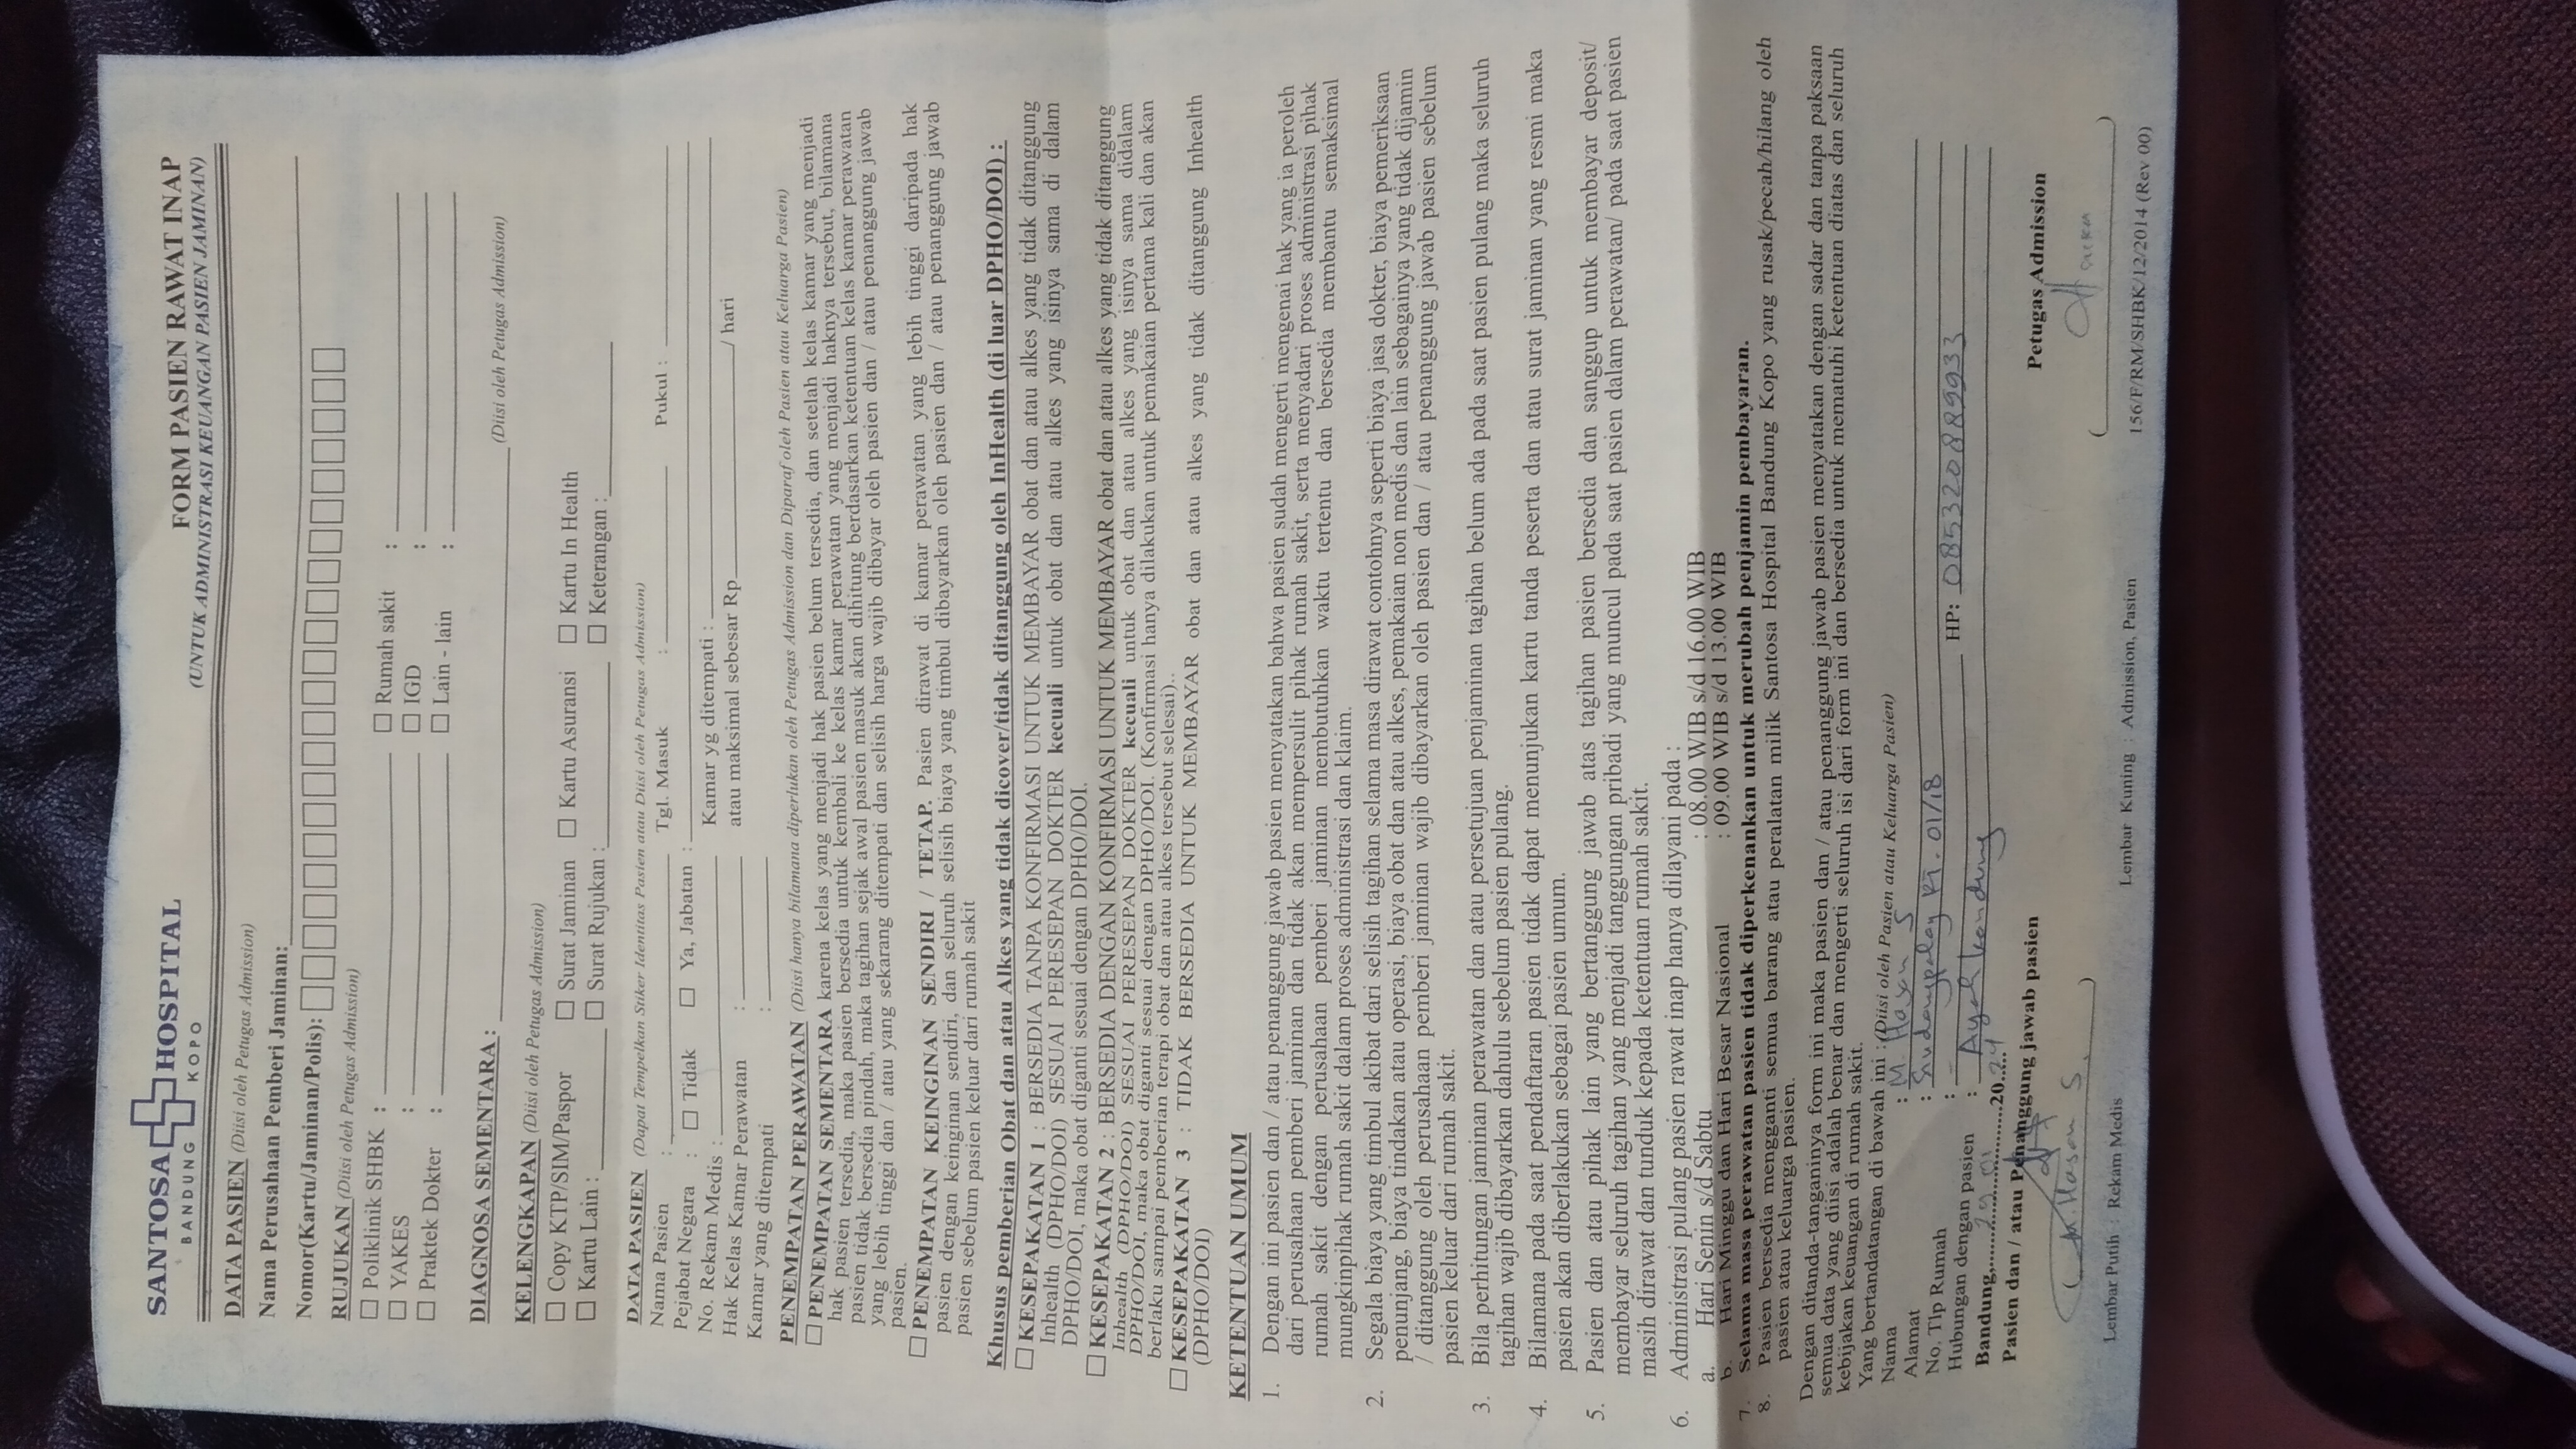 SANTOSA HOSPITAL
BANDUNG KOPO
FORM PASIEN RAWAT INAP
(UNTUK ADMINISTRASI KEUANGAN PASIEN JAMINAN)
DATA PASIEN (Diisi oleh Petugas Admission)
Nama Perusahaan Pemberi Jaminan:
Nomor(Kartu/Jaminan/Polis):
RUJUKAN (Diisi oleh Petugas Admission)
Poliklinik SHBK : Rumah sakit :
YAKES : IGD :
Praktek Dokter : Lain - lain :
DIAGNOSA SEMENTARA : (Diisi oleh Petugas Admission)
KELENGKAPAN (Diisi oleh Petugas Admission)
Copy KTP/SIM/Paspor Surat Jaminan Kartu Asuransi Kartu In Health
Kartu Lain : Surat Rujukan : Keterangan :
DATA PASIEN (Dapat Tempelkan Stiker Identitas Pasien atau Diisi oleh Petugas Admission)
Nama Pasien : Tgl. Masuk : Pukul :
Pejabat Negara : Tidak Ya, Jabatan :
No. Rekam Medis : Kamar yg ditempati :
Hak Kelas Kamar Perawatan : atau maksimal sebesar Rp / hari
Kamar yang ditempati :
PENEMPATAN PERAWATAN (Diisi hanya bilamana diperlukan oleh Petugas Admission dan Diparaf oleh Pasien atau Keluarga Pasien)
PENEMPATAN SEMENTARA karena kelas yang menjadi hak pasien belum tersedia, dan setelah kelas kamar yang menjadi
hak pasien tersedia, maka pasien bersedia untuk kembali ke kelas kamar perawatan yang menjadi haknya tersebut, bilamana
pasien tidak bersedia pindah, maka tagihan sejak awal pasien masuk akan dihitung berdasarkan ketentuan kelas kamar perawatan
yang lebih tinggi dan / atau yang sekarang ditempati dan selisih harga wajib dibayar oleh pasien dan / atau penanggung jawab
pasien.
PENEMPATAN KEINGINAN SENDIRI / TETAP. Pasien dirawat di kamar perawatan yang lebih tinggi daripada hak
pasien dengan keinginan sendiri, dan seluruh selisih biaya yang timbul dibayarkan oleh pasien dan / atau penanggung jawab
pasien sebelum pasien keluar dari rumah sakit
Khusus pemberian Obat dan atau Alkes yang tidak dicover/tidak ditanggung oleh InHealth (di luar DPHO/DOI) :
KESEPAKATAN 1 : BERSEDIA TANPA KONFIRMASI UNTUK MEMBAYAR obat dan atau alkes yang tidak ditanggung
Inhealth (DPHO/DOI) SESUAI PERESEPAN DOKTER kecuali untuk obat dan atau alkes yang isinya sama di dalam
DPHO/DOI, maka obat diganti sesuai dengan DPHO/DOI.
KESEPAKATAN 2 : BERSEDIA DENGAN KONFIRMASI UNTUK MEMBAYAR obat dan atau alkes yang tidak ditanggung
Inhealth (DPHO/DOI) SESUAI PERESEPAN DOKTER kecuali untuk obat dan atau alkes yang isinya sama didalam
DPHO/DOI, maka obat diganti sesuai dengan DPHO/DOI. (Konfirmasi hanya dilakukan untuk pemakaian pertama kali dan akan
berlaku sampai pemberian terapi obat dan atau alkes tersebut selesai)..
KESEPAKATAN 3 : TIDAK BERSEDIA UNTUK MEMBAYAR obat dan atau alkes yang tidak ditanggung Inhealth
(DPHO/DOI)
KETENTUAN UMUM
1. Dengan ini pasien dan / atau penanggung jawab pasien menyatakan bahwa pasien sudah mengerti mengenai hak yang ia peroleh
dari perusahaan pemberi jaminan dan tidak akan mempersulit pihak rumah sakit, serta menyadari proses administrasi pihak
rumah sakit dengan perusahaan pemberi jaminan membutuhkan waktu tertentu dan bersedia membantu semaksimal
mungkinpihak rumah sakit dalam proses administrasi dan klaim.
2. Segala biaya yang timbul akibat dari selisih tagihan selama masa dirawat contohnya seperti biaya jasa dokter, biaya pemeriksaan
penunjang, biaya tindakan atau operasi, biaya obat dan atau alkes, pemakaian non medis dan lain sebagainya yang tidak dijamin
/ ditanggung oleh perusahaan pemberi jaminan wajib dibayarkan oleh pasien dan / atau penanggung jawab pasien sebelum
pasien keluar dari rumah sakit.
3. Bila perhitungan jaminan perawatan dan atau persetujuan penjaminan tagihan belum ada pada saat pasien pulang maka seluruh
tagihan wajib dibayarkan dahulu sebelum pasien pulang.
4. Bilamana pada saat pendaftaran pasien tidak dapat menunjukan kartu tanda peserta dan atau surat jaminan yang resmi maka
pasien akan diberlakukan sebagai pasien umum.
5. Pasien dan atau pihak lain yang bertanggung jawab atas tagihan pasien bersedia dan sanggup untuk membayar deposit/
membayar seluruh tagihan yang menjadi tanggungan pribadi yang muncul pada saat pasien dalam perawatan/ pada saat pasien
masih dirawat dan tunduk kepada ketentuan rumah sakit.
6. Administrasi pulang pasien rawat inap hanya dilayani pada :
a. Hari Senin s/d Sabtu : 08.00 WIB s/d 16.00 WIB
b. Hari Minggu dan Hari Besar Nasional : 09.00 WIB s/d 13.00 WIB
7. Selama masa perawatan pasien tidak diperkenankan untuk merubah penjamin pembayaran.
8. Pasien bersedia mengganti semua barang atau peralatan milik Santosa Hospital Bandung Kopo yang rusak/pecah/hilang oleh
pasien atau keluarga pasien.
Dengan ditanda-tanganinya form ini maka pasien dan / atau penanggung jawab pasien menyatakan dengan sadar dan tanpa paksaan
semua data yang diisi adalah benar dan mengerti seluruh isi dari form ini dan bersedia untuk mematuhi ketentuan diatas dan seluruh
kebijakan keuangan di rumah sakit.
Yang bertandatangan di bawah ini : (Diisi oleh Pasien atau Keluarga Pasien)
Nama : M. Hasan S
Alamat : RT. 01/18
No. Tlp Rumah : - HP: 085320889933
Hubungan dengan pasien : Ayah kandung
Bandung, 29 01 2024
Pasien dan / atau Penanggung jawab pasien Petugas Admission
(M. Hasan S.) ( )
Lembar Putih : Rekam Medis Lembar Kuning : Admission, Pasien 156/F/RM/SHBK/12/2014 (Rev 00)